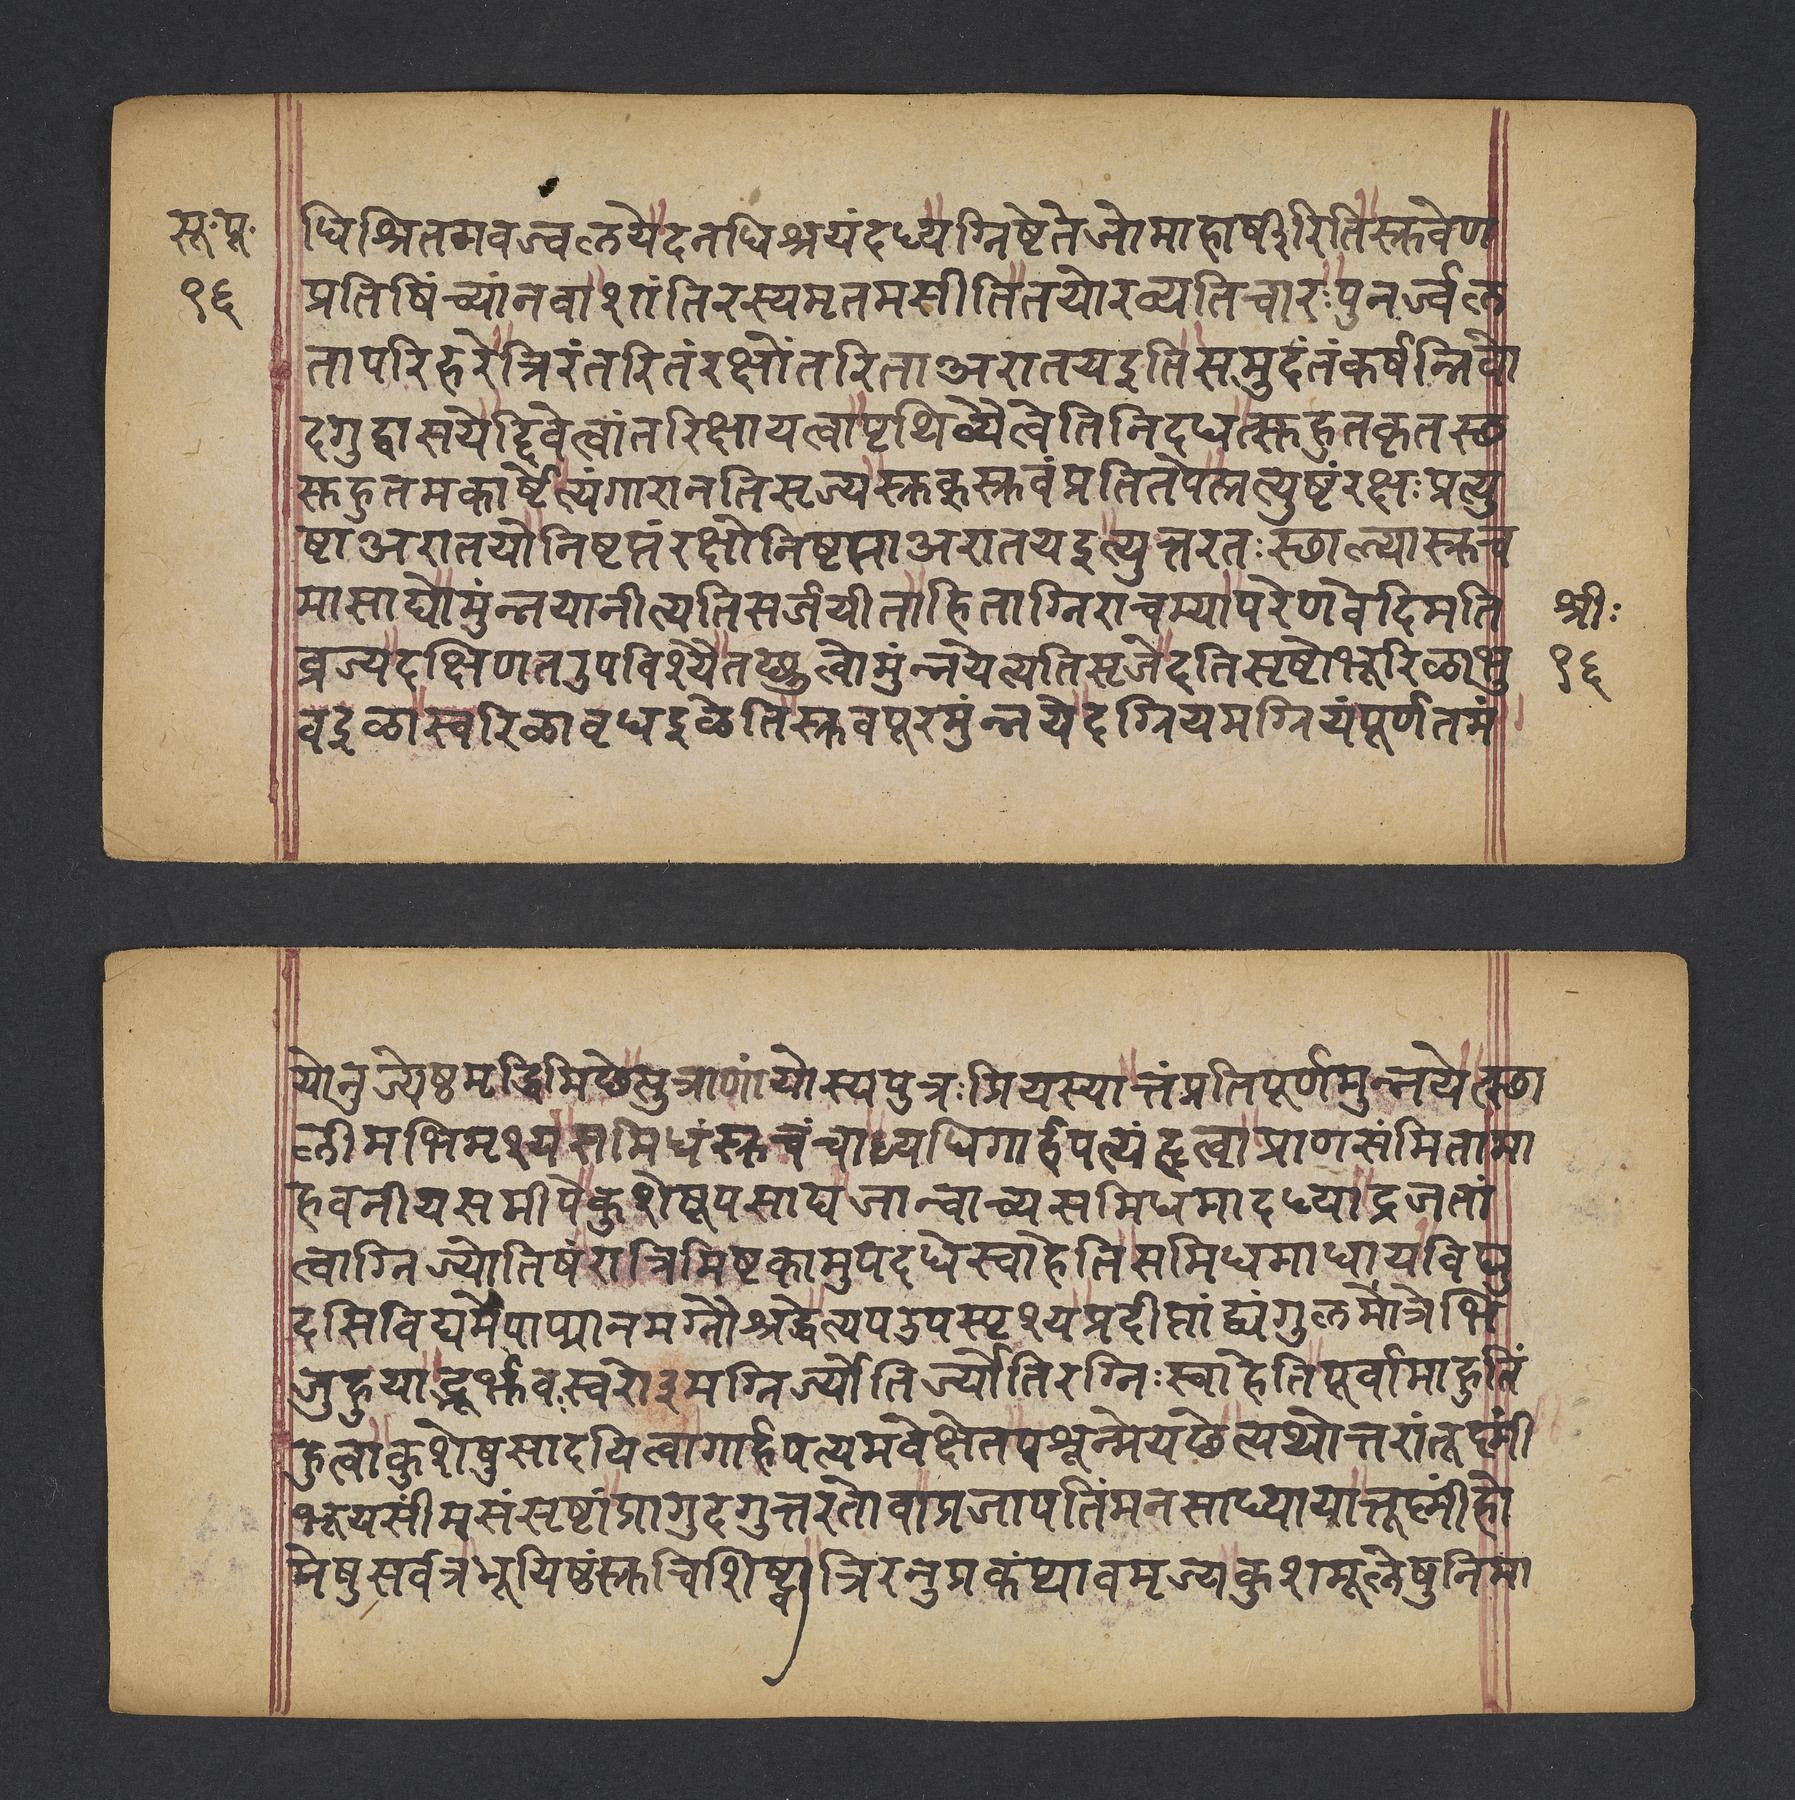 सू॰पू॰
१६
धिश्रितमवज्वलयेदनधिश्रयंदध्यग्निष्टेतेजोमाहार्षीरितिस्रुवेण
प्रतिषिंच्यान्नवाशांतिरस्यमृतमसीतितयोरव्यतिचारःपुनर्ज्वल
तापरिहरेत्रिरंतरितंरक्षोंतरिताअरातयइतिसमुदंतंकर्षन्निवो
दगुद्वासयेद्दिवेत्वांतरिक्षायत्वापृथिव्यैत्वेतिनिदधत्सुहुतकृतस्छ
सुहुतमकार्ष्टेत्यंगारानतिसृज्यस्रुक्स्रुवंप्रतितपेत्प्रत्युष्टंरक्षःप्रत्यु
ष्टाअरातयोनिष्टप्तंरक्षोनिष्टप्ताअरातयइत्युत्तरतःस्छाल्यास्रुच
मासाद्योमुंन्नयानीत्यतिसर्जयीताहिताग्निराचम्यापरेणवेदिमति
व्रज्यदक्षिणतउपविश्यैतच्छ्रुत्वोमुंन्नयेत्यतिसृजेदतिसृष्टोभूरिळाभु
वइळास्वरिळावृधइळेतिस्रुवपूरमुंन्नयेदग्नियमग्नियंपूर्णतमं
श्रीः
१६
योनुज्येष्ठमृद्धिमिछेत्पुत्राणांयोस्यपुत्रःप्रियस्यात्तंप्रतिपूर्णमुन्नयेत्स्छा
लीमभिमृश्यसमिधंस्रुचंचाध्यधिगार्हपत्यंहृत्वाप्राणसंमितामा
हवनीयसमीपेकुशेषूपसाद्यजान्वाच्यसमिधमादध्याद्रजतां
त्वाग्निज्योतिषंरात्रिमिष्टकामुपदधेस्वाहेतिसमिधमाधायविद्यु
दसिविद्यमेपाप्मानमग्नौश्रद्धेत्यपउपस्पृश्यप्रदीप्तांद्व्यंगुलमात्रेभि
जुहुयाद्भूर्भुवःस्वरो३मग्निर्ज्योतिर्ज्योतिरग्निःस्वाहेतिपूर्वामाहुतिं
हुत्वाकुशेषुसादयित्वागार्हपत्यमवेक्षेतपश्रून्मेयछेत्यथोत्तरांतूष्णीं
भूयसीमसंसृष्टांप्रागुदगुत्तरतोवाप्रजापतिंमनसाध्यायात्तूष्णींहो
मेषुसर्वत्रभूयिष्ठंस्रुचिशिष्ट्वात्रिरनुप्रकंप्यावमृज्यकुशमूलेषुनिमा